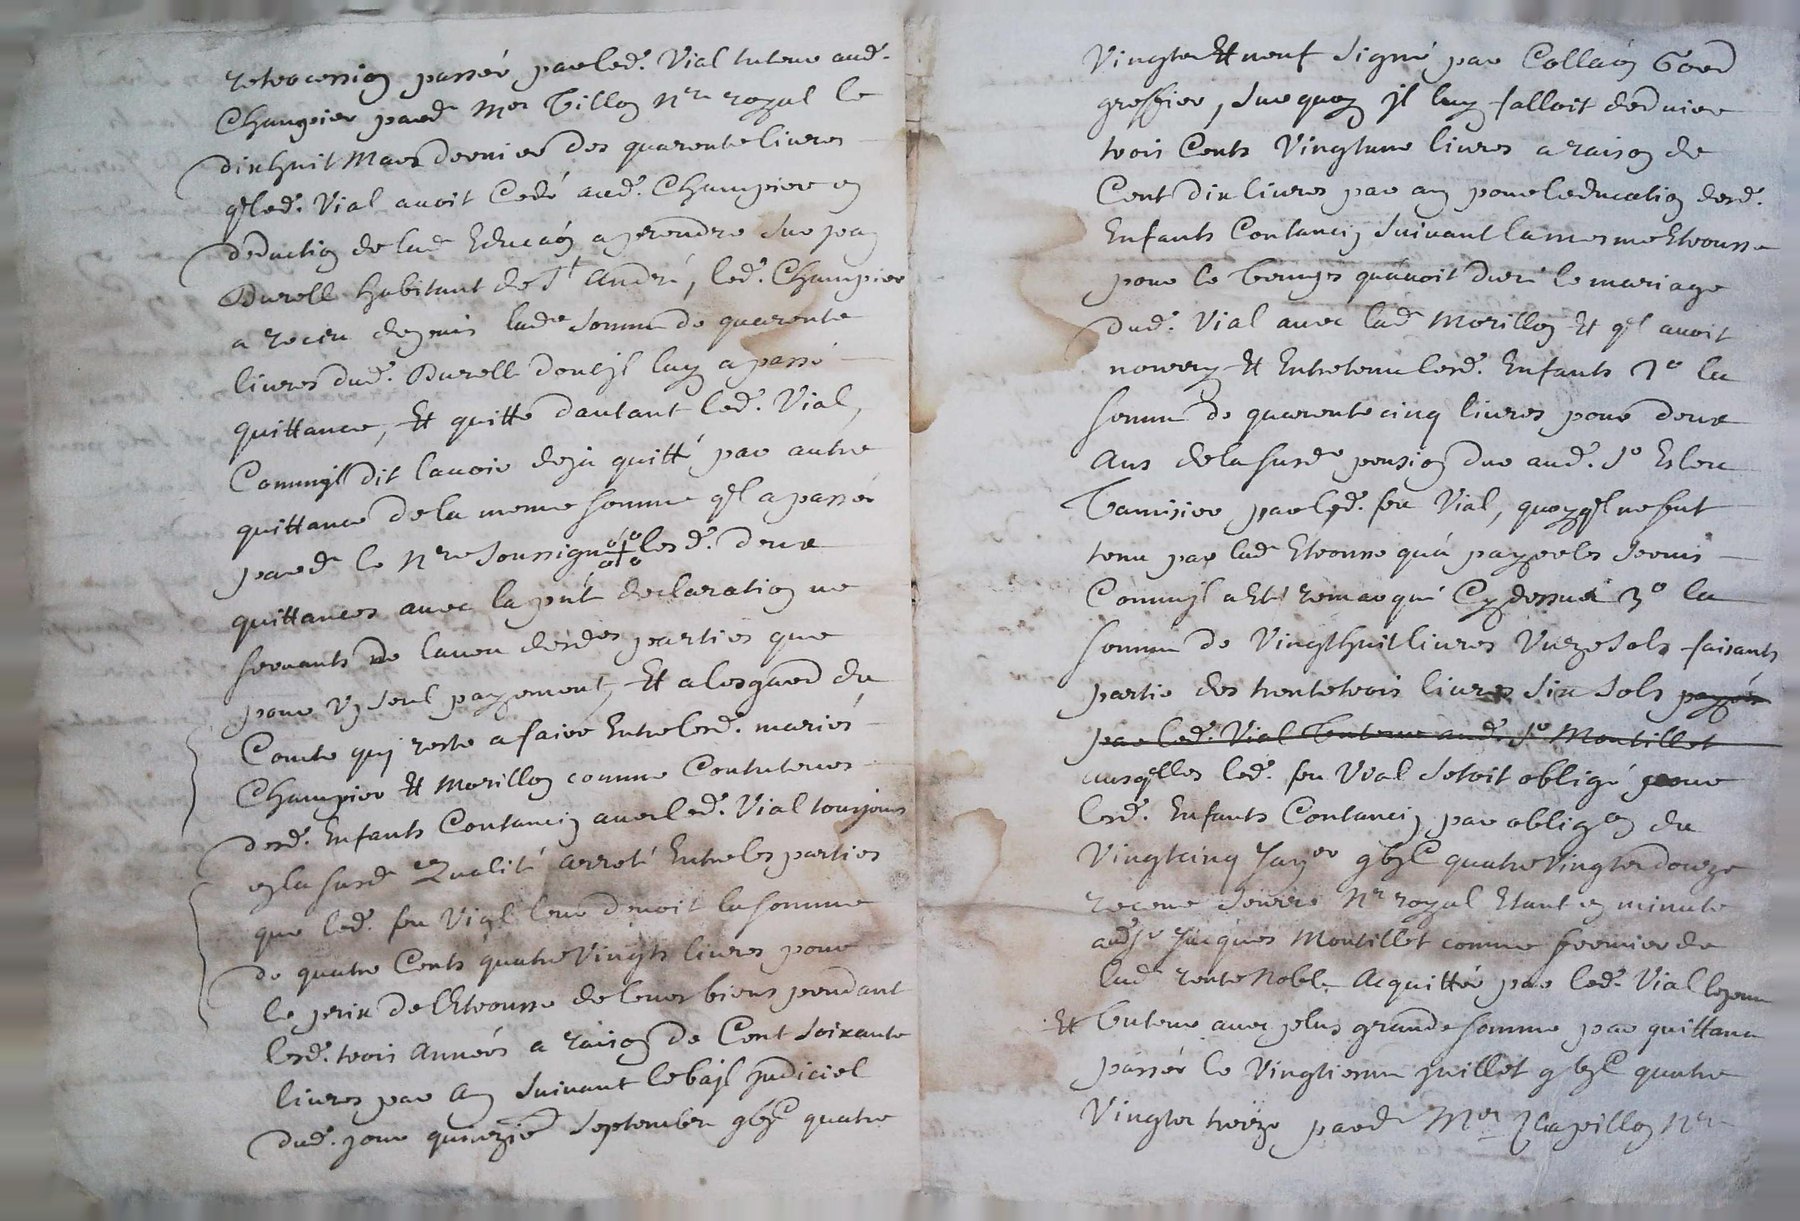 retrocession passée par led. Vial tuteur aud.
Champier pard. Mer Tillon Nre royal le
dixhuit Mars dernier des quarente livres
qled. Vial avoit Cedé aud. Champier en
deduction de lad. Educaon a prendre sur jean
Burell habitant de St André, led. Champier
a receu depuis lade somme de quarente
livres dud. Burell dont jl luy a passé
quittance, Et quitte dautant led. Vial,
Commjl dit lavoir deja quitté par autre
quittance de la mesme somme ql a passée
pard. le Nre soussigné lesd. deux
quittances avec la pnte declaration ne
servants de laveu desdes parties que
pour un seul payement, Et a lesgard du
Comte quj reste a faire Entre lesd. mariés
Champier Et Morillon comme Contuteurs
desd. Enfants Contancin avec led. Vial tousjours
en la susde Qualité arreté Entre les parties
que led. feu Vial leur devoit la somme
de quatre Cents quatre Vingts livres pour
le prix de l'Etrousse de leurs biens pendant
lesd. trois Années a raison de Cent soixante
livres par An suivant le bajl judiciel
dud. jour quinzie septembre gbjC quatre
Vingts Et neuf signé par Collaon
greffier, sur quoy jl luy falloit deduire
trois Cents Vingt une livres a raison de
Cent dix livres par an pour leducation desd.
Enfants Contancin suivant la mesme Etrousse
pour le temps quavoit duré le mariage
dud. Vial avec lad. Morillon Et ql avoit
nourry Et Entretenu lesd. Enfants 2o la
somme de quarente cinq livres pour deux
Ans de la susde pension due aud. Sr Esleu
Tamisier par led. feu Vial, quoyql ne fut
tenu par lad. Etrousse qua payer les servis
Commjl a Eté remarqué Cy dessus 3o la
somme de Vingthuit livres Unze sols faisants
partie des trente trois livres six sols payés
par led. Vial Tuteur aud. Sr Montillet
ausqlles led. feu Vial s'etoit obligé pour
lesd. Enfants Contancin par obligon du
Vingt cinq Janer gbjC quatre Vingts douze
receue Nre royal Etant en minute
aud Sr Jacques Montillet comme fermier de
lad. rente Noble Acquittée par led. Vial
Et Tuteur avec plus grande somme par quittance
passée le Vingtiesme juillet gbjC quatre
Vingts treize pard. Mer Nre